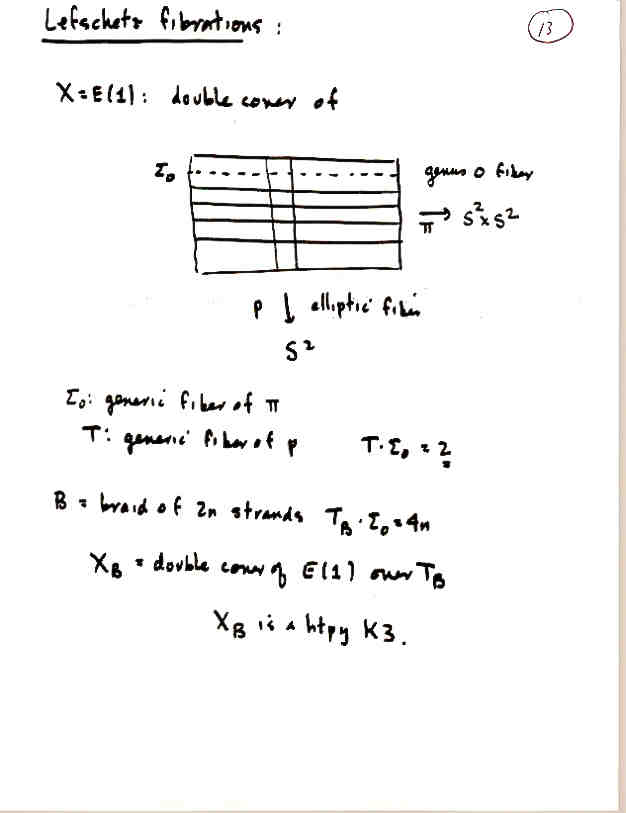 Lefschetz fibrations :
13
X = E(1) : double cover of
Σ₀
genus 0 fiber
→ S² x S²
π
p ↓ elliptic fibr.
S²
Σ₀: generic fiber of π
T: generic fiber of p T·Σ₀ = 2
B = braid of 2n strands T_B · Σ₀ = 4n
X_B = double cover of E(1) over T_B
X_B is a htpy K3.